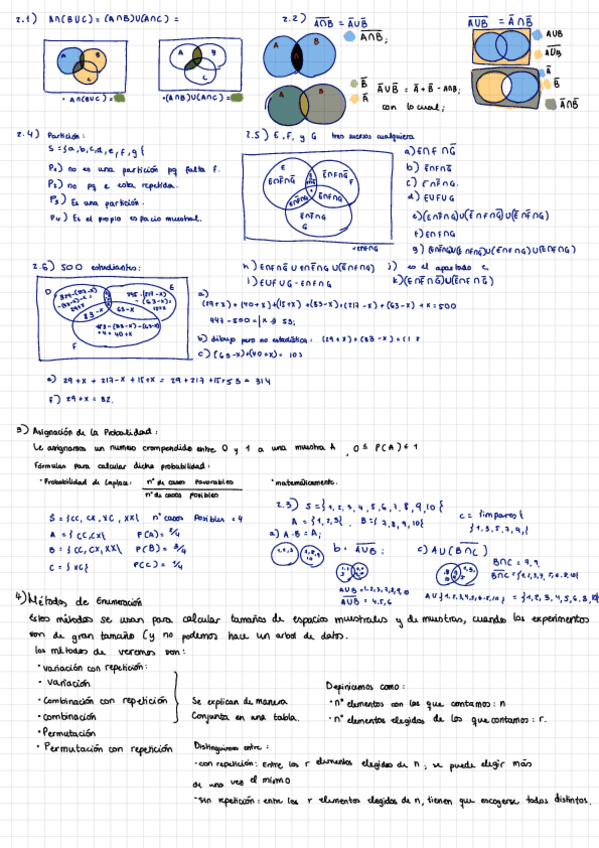 2.1) A∩(B∪C) = (A∩B)∪(A∩C) =
A B C
• A∩(B∪C) =
• (A∩B)∪(A∩C) =
2.2) A̅∩̅B̅ = A̅∪B̅
A B
A∩B;
B̅
A̅
A̅∪B̅ = A̅ + B̅ - A∩B;
con lo cual;
A̅∪̅B̅ = A̅∩B̅
A∪B
A̅∪̅B̅
A̅
B̅
A̅∩B̅
2.4) Partición:
S = {a, b, c, d, e, f, g}
P₁) no es una partición pq falta f.
P₂) no pq e esta repetida.
P₃) Es una partición.
P₄) Es el propio espacio muestral.
2.5) E, F, y G tres sucesos cualquiera
a) E∩F̅∩G̅
b) E̅∩F∩G̅
c) G∩F̅∩E̅.
d) E∪F∪G
f) E∩F∩G
h) E∩F∩G̅ ∪ E∩F̅∩G ∪ (E̅∩F∩G)
i) E∪F∪G - E∩F∩G
j) es el apartado e.
2.6) 500 estudiantes:
D E F
83-x 63-x
a)
(29+x) + (40+x) + (15+x) + (83-x) + (217-x) + (63-x) + x = 500
447 - 500 = x → 53;
c) (63-x)+(40+x) = 103
e) 29+x + 217-x + 15+x = 29+217+15+53 = 314
f) 29+x = 82.
3) Asignación de la Probabilidad:
Le asignamos un numero comprendido entre 0 y 1 a una muestra A , 0 ≤ P(A) ≤ 1
Fórmulas para calcular dicha probabilidad:
• Probabilidad de Laplace: nº de casos favorables / nº de casos posibles
• matemáticamente.
S = {CC, CX, XC, XX} nº casos Posibles = 4
A = {CC, CX} P(A) = 2/4
B = {CC, CX, XX} P(B) = 3/4
C = {XC} P(C) = 1/4
2.3) S = {1, 2, 3, 4, 5, 6, 7, 8, 9, 10}
A = {1, 2, 3} B = {7, 8, 9, 10} C = {impares}
{1, 3, 5, 7, 9}
a) A-B = A; b = A̅∪̅B̅; c) A∪(B̅∩̅C̅)
B∩C = 7, 9.
A∪B = 1, 2, 3, 7, 8, 9, 10
A̅∪̅B̅ = 4, 5, 6
4) Métodos de Enumeración
Estos métodos se usan para calcular tamaños de espacios muestrales y de muestras, cuando los experimentos
son de gran tamaño (y no podemos hace un arbol de datos.
Los métodos de veremos son:
• Variación con repetición:
• Variación
• Combinación con repetición
• Combinación
• Permutación
• Permutación con repetición
Se explican de manera
Conjunta en una tabla.
Definiremos como:
• nº elementos con los que contamos: n
• nº elementos elegidos de los que contamos: r.
Distinguimos entre:
• con repetición: Entre los r elementos elegidos de n, se puede elegir más
de una vez el mismo
• sin repetición: entre los r elementos elegidos de n, tienen que escogerse todos distintos.